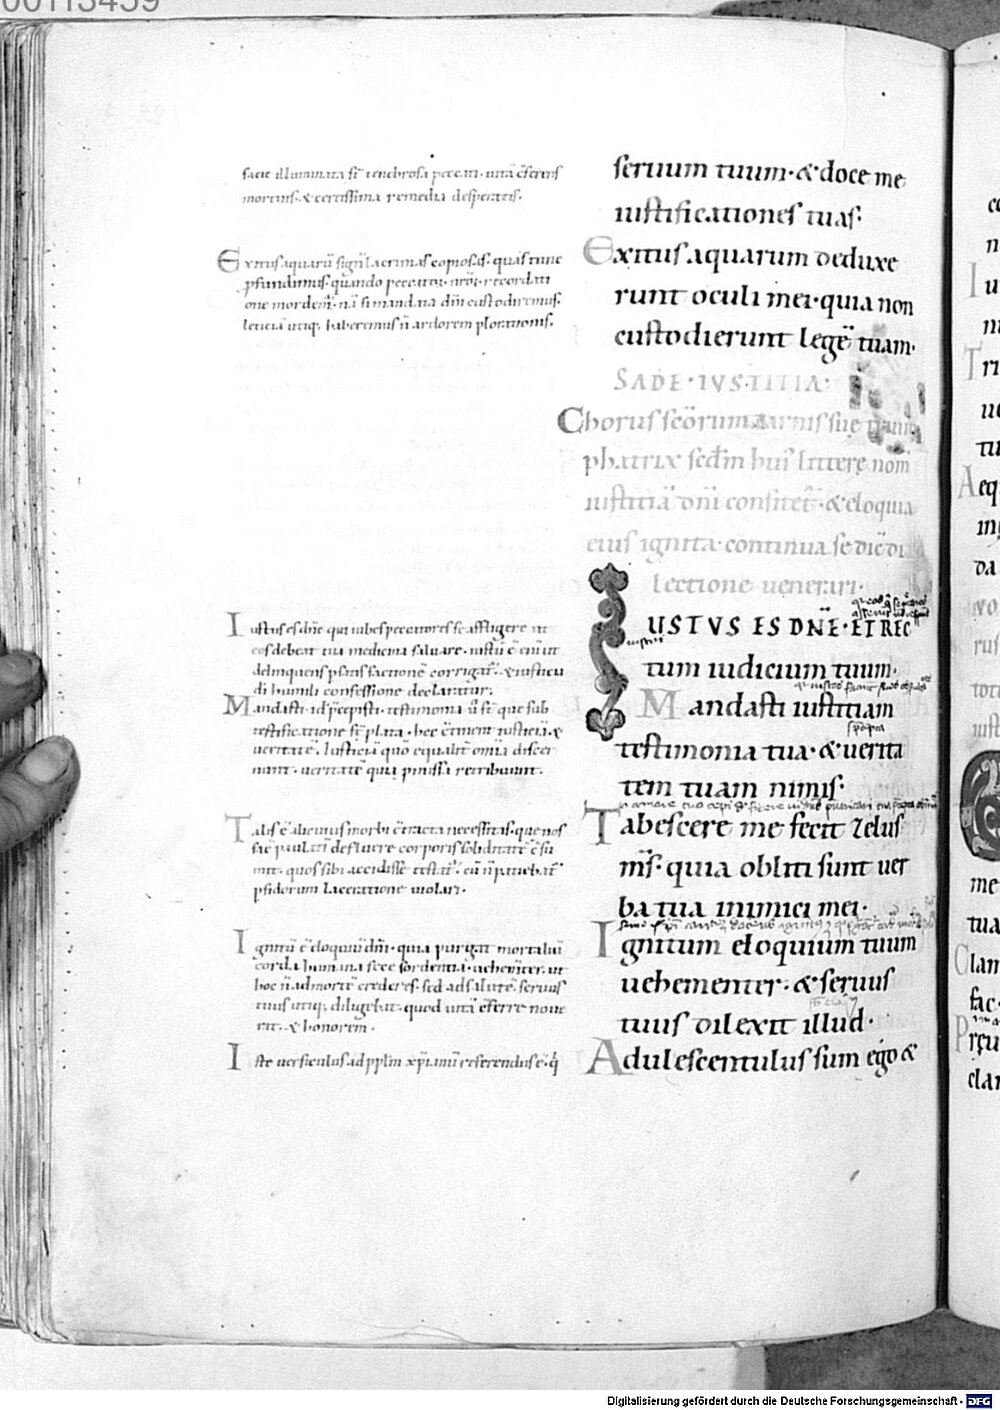 00113459
facie illuminata st̄ tenebrosa peccati. uitā c̄ferens
mortuis. & certissima remedia desperatis.
Exitus aquarū sign̄t lacrimas copiosas. quas tunc
p̄fundimus. quando peccatoꝝ nr̄oꝝ recordati
one mordem̄. nā si mandata dn̄i custodiremus.
leticiā utiq; haberemus n̄ ardorem plorationis.
Iustus es dn̄e qui iubes peccatores se affligere ut
eos debeat tua medicina saluare. iustū ē enī ut
delinquens p satisfactionē corrigat̄. & iusticia
di humili confessione declaratur.
Mandasti. id p̄cepisti. testimonia ū st̄ que sub
testificatione st̄ plata. hec c̄tinent iusticiā. &
ueritatē. Iusticiā quō equalit̄ omīa discer
nunt. ueritatē quia pmissa retribuunt.
Talis ē alienius morbi c̄tracta necessitas. que nos
fac̄ paulatī defluere corporis soliditate c̄su
mit. quos sibi accidisse testat̄. cū n̄ patiebat̄
psidorum laceratione uiolari.
Ignitū ē eloquiū dn̄i. quia purgat mortaliū
corda humana fece sordentia. uehem̄ter. ut
hoc n̄ ad mortē crederes. sed ad salutē. seruus
tuus utiq; diligebat. quod uitā c̄ferre noue
rit. & honorem.
Iste uersiculus ad pplm xp̄ianū referendus ē. q̄
seruum tuum. & doce me
iustificationes tuas.
Exitus aquarum deduxe
runt oculi mei. quia non
custodierunt legē tuam.
SADE. IVSTITIA.
Chorus scōrum carnis sue trium
phatrix scd̄m huī littere nom̄
iustitiā dn̄i confitet̄. & eloquia
eius ignita. continua se dic̄ di
lectione uenerari.
IUSTVS ES DN̄E. ET REC
tum iudicium tuum.
Mandasti iustitiam
testimonia tua. & uerita
tem tuam nimis.
Tabescere me fecit zelus
m̄s. quia obliti sunt uer
ba tua inimici mei.
Ignitum eloquium tuum
uehementer. & seruus
tuus dilexit illud.
Adulescentulus sum ego &
Digitalisierung gefördert durch die Deutsche Forschungsgemeinschaft - DFG